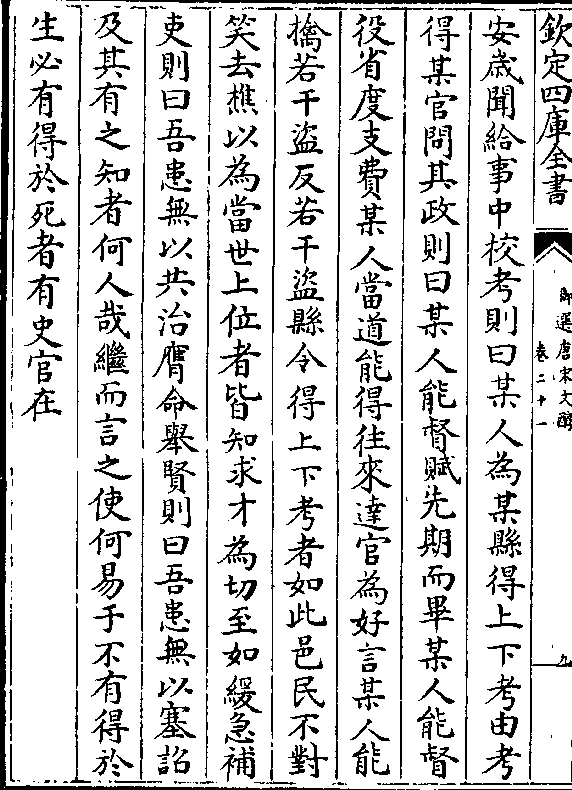 欽定四庫全書
御選唐宋文醇
卷二十一
九
安歲聞給事中校考則曰某人為某縣得上下考由考
得某官問其政則曰某人能督賦先期而畢某人能督
役省度支費某人當道能得往來達官為好言某人能
擒若干盜反若干盜縣令得上下考者如此邑民不對
笑去樵以為當世上位者皆知求才為切至如緩急補
吏則曰吾患無以共治膺命舉賢則曰吾患無以塞詔
及其有之知者何人哉繼而言之使何易于不有得於
生必有得於死者有史官在